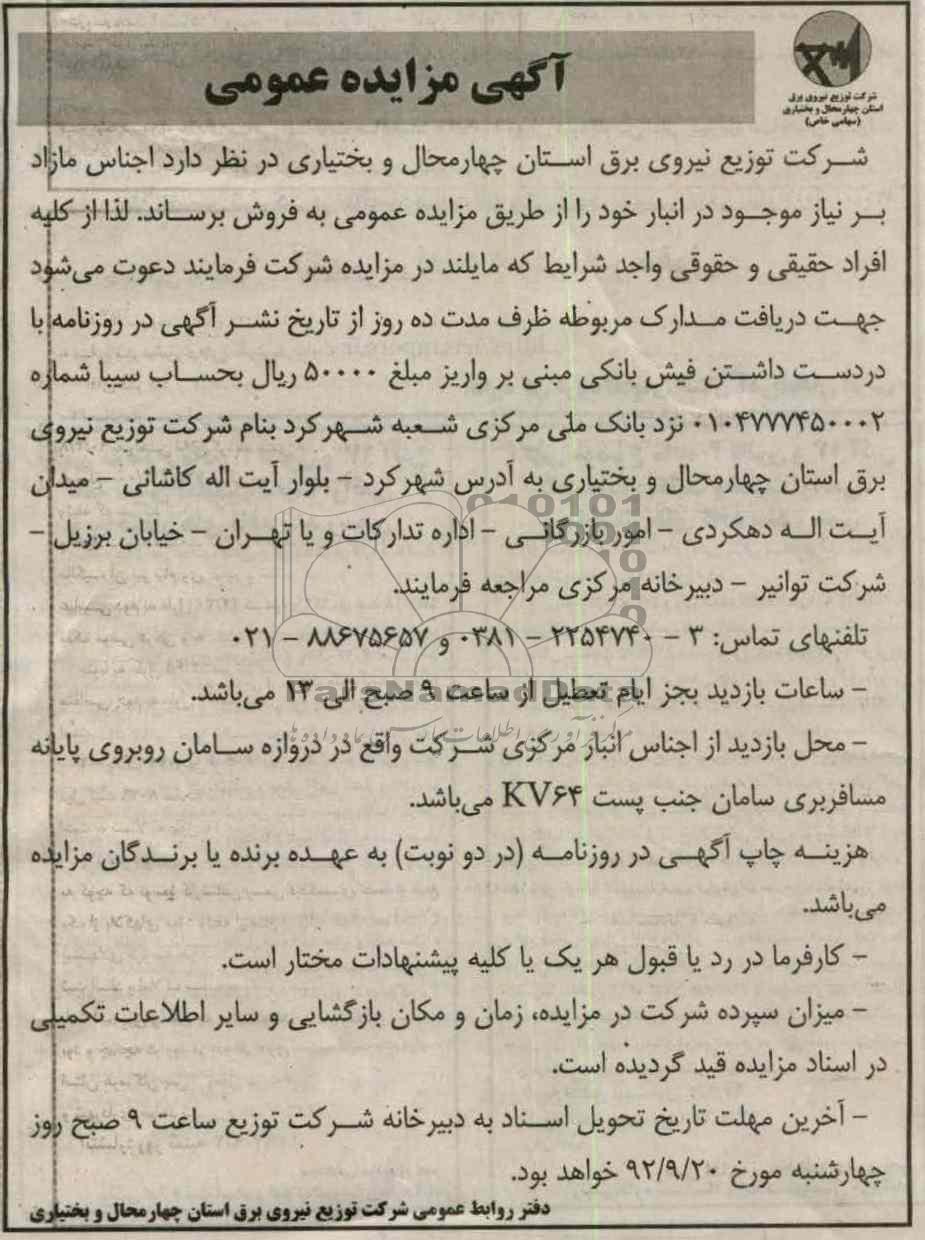 شرکت توزیع نیروی برق
استان چهارمحال و بختیاری
(سهامی خاص)
آگهی مزایده عمومی
شرکت توزیع نیروی برق استان چهارمحال و بختیاری در نظر دارد اجناس مازاد
بر نیاز موجود در انبار خود را از طریق مزایده عمومی به فروش برساند. لذا از کلیه
افراد حقیقی و حقوقی واجد شرایط که مایلند در مزایده شرکت فرمایند دعوت می‌شود
جهت دریافت مدارک مربوطه ظرف مدت ده روز از تاریخ نشر آگهی در روزنامه با
دردست داشتن فیش بانکی مبنی بر واریز مبلغ ۵۰۰۰۰ ریال بحساب سیبا شماره
۰۱۰۴۷۷۷۴۵۰۰۰۲ نزد بانک ملی مرکزی شعبه شهرکرد بنام شرکت توزیع نیروی
برق استان چهارمحال و بختیاری به آدرس شهرکرد – بلوار آیت اله کاشانی – میدان
آیت اله دهکردی – امور بازرگانی – اداره تدارکات و یا تهران – خیابان برزیل –
شرکت توانیر – دبیرخانه مرکزی مراجعه فرمایند.
تلفنهای تماس: ۳ – ۲۲۵۴۷۴۰ – ۰۳۸۱ و ۸۸۶۷۵۶۵۷ – ۰۲۱
– ساعات بازدید بجز ایام تعطیل از ساعت ۹ صبح الی ۱۳ می‌باشد.
ParsNamadData
– محل بازدید از اجناس انبار مرکزی شرکت واقع در دروازه سامان روبروی پایانه
مسافربری سامان جنب پست KV۶۴ می‌باشد.
هزینه چاپ آگهی در روزنامه (در دو نوبت) به عهده برنده یا برندگان مزایده
می‌باشد.
– کارفرما در رد یا قبول هر یک یا کلیه پیشنهادات مختار است.
– میزان سپرده شرکت در مزایده، زمان و مکان بازگشایی و سایر اطلاعات تکمیلی
در اسناد مزایده قید گردیده است.
– آخرین مهلت تاریخ تحویل اسناد به دبیرخانه شرکت توزیع ساعت ۹ صبح روز
چهارشنبه مورخ ۹۲/۹/۲۰ خواهد بود.
دفتر روابط عمومی شرکت توزیع نیروی برق استان چهارمحال و بختیاری